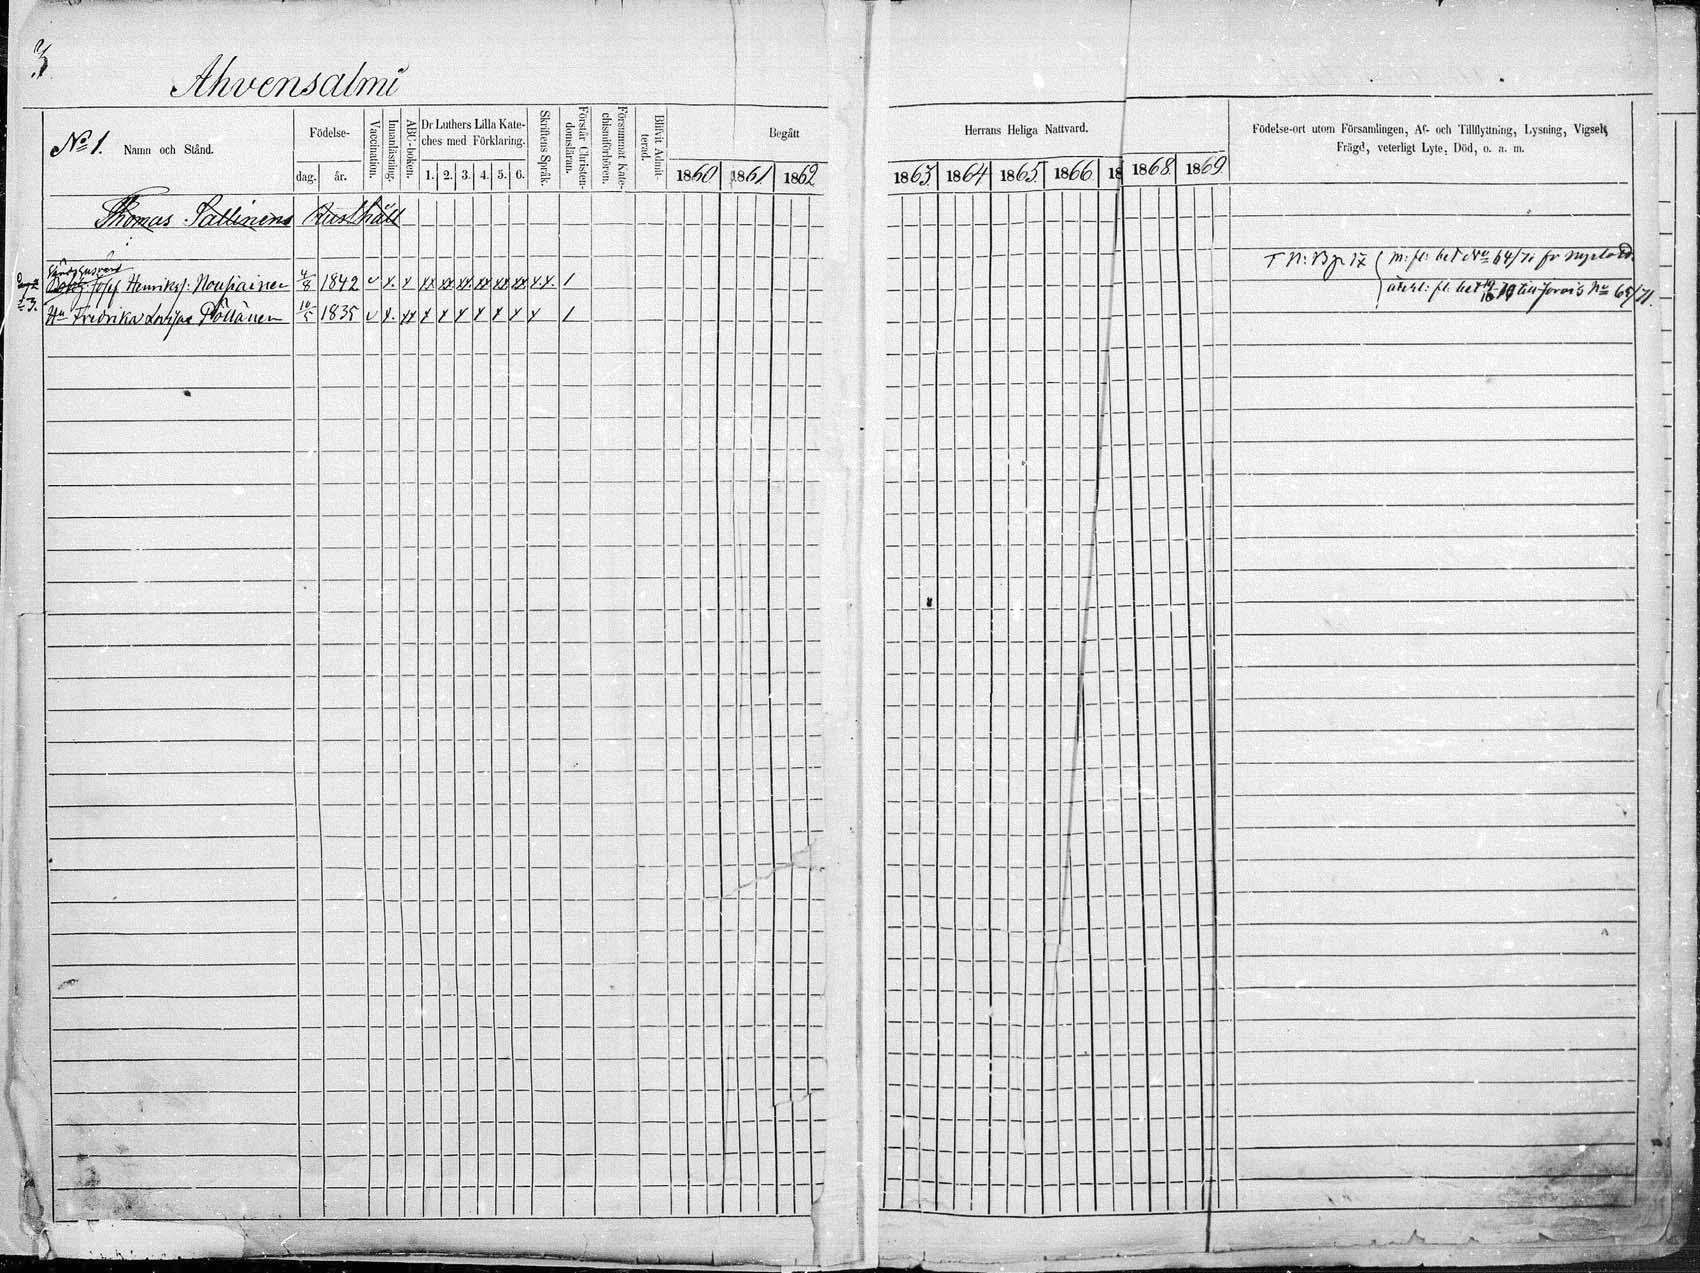 3
Ahvensalmi
No 1. Namn och Stånd.
Födelse-
dag. år.
Vaccination.
Innanläsning.
ABC-boken.
Dr Luthers Lilla Kate-
ches med Förklaring.
1. 2. 3. 4. 5. 6.
Skriftens Språk.
Förstår Christen-
domsläran.
Försummat Kate-
chismiförhören.
Blifvit Admit-
terad.
Begått
1860 1861 1862
Herrans Heliga Nattvard.
1863 1864 1865 1866 18 1868 1869
Födelse-ort utom Församlingen, Af- och Tillflyttning, Lysning, Vigsel,
Frägd, veterligt Lyte, Död, o. a. m.
Thomas Sallinens
Henriks: Noupiainen 4/8 1842 v x. x xx xx xx xx xx xx x.x. 1
Hu Fredrika Lovisa Pöllänen 10/5 1835 v x. xx x x x x x x x 1
64/71
No 65/71.